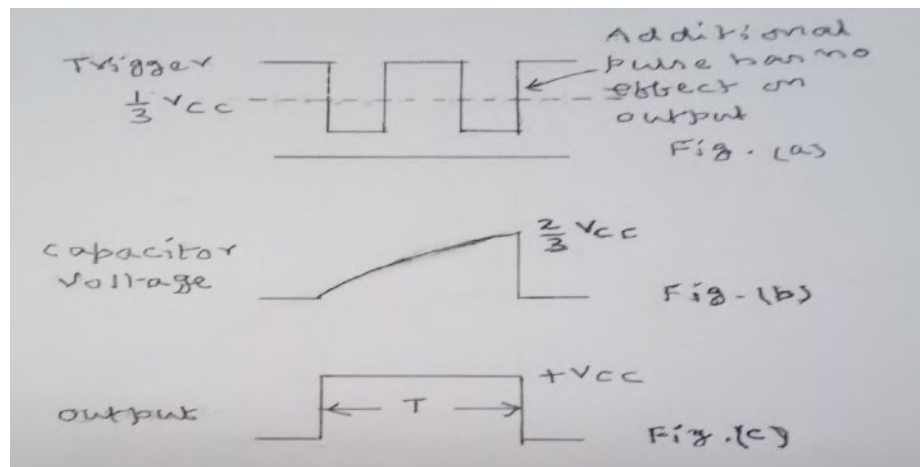 Trigger
1/3 VCC
Additional
pulse has no
effect on
output
Fig. (a)
Capacitor
voltage
2/3 VCC
Fig-(b)
output
T
+VCC
Fig.(c)